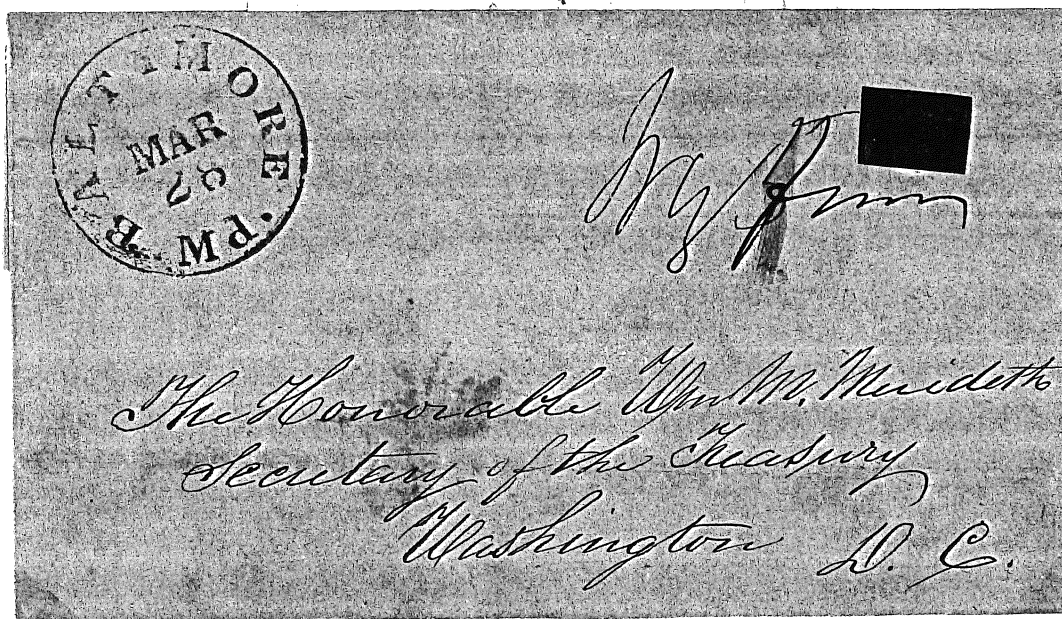 BALTIMORE · Md.
MAR
28
The Honorable Wm M. Merideth
Secretary of the Treasury
Washington D. C.